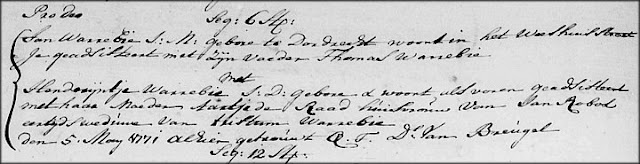 Pro deo Seg: 6 St:
Jan Warrebie J: M: gebore te Dordrecht woont in het Weeshuisstraat
Is geadsisteert met zijn vaeder Thomas Warrebie
met
Hendrijntje Warrebie J: D: gebore & woont als voren geadsisteert
met haar Moeder Aartje de Raad huisvrouw van Jan Robol
eertyds weduwe van Willem Warrebie
den 5 May 1771 alhier getrouwt Q. T. Ds Van Breugel
Seg: 12 St: